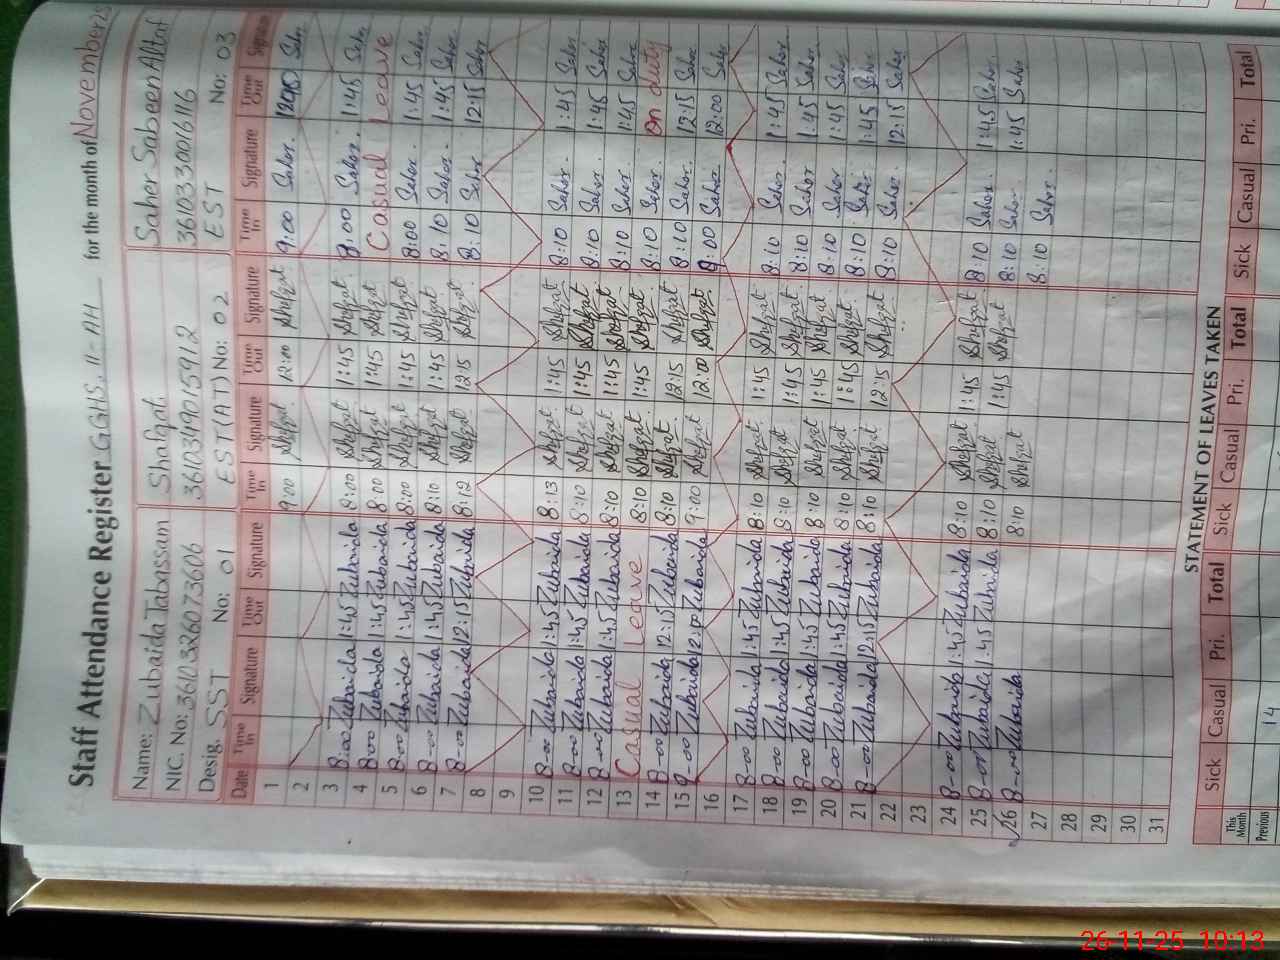 Staff Attendance Register GGHS, 11-AH for the month of November 25
Name: Zubaida Tabassam Shafqat Saher Sabeen Altaf
NIC. No: 36103326073606 3610399015912 3610330016116
Desig. SST No: 01 EST (AT) No: 02 EST No: 03
Date Time In Signature Time Out Signature Time In Signature Time Out Signature Time In Signature Time Out Signature
1 9:00 Shafqat 12:00 Shafqat 9:00 Saher. 12:05 Saher
2
3 8:00 Zubaida 1:45 Zubaida 8:00 Shafqat 1:45 Shafqat 8:00 Saher. 1:45 Saher
4 8-00 Zubaida 1:45 Zubaida 8:00 Shafqat 1:45 Shafqat Casual Leave
5 8-00 Zubaida 1:45 Zubaida 8:00 Shafqat 1:45 Shafqat 8:00 Saher. 1:45 Saher
6 8-00 Zubaida 1:45 Zubaida 8:10 Shafqat 1:45 Shafqat 8:10 Saher. 1:45 Saher
7 8-00 Zubaida 12:15 Zubaida 8:12 Shafqat 12:15 Shafqat 8:10 Saher 12:15 Saher
8
9
10 8-00 Zubaida 1:45 Zubaida 8:13 Shafqat 1:45 Shafqat 8:10 Saher. 1:45 Saher
11 8-00 Zubaida 1:45 Zubaida 8:10 Shafqat 1:45 Shafqat 8:10 Saher. 1:45 Saher
12 8-00 Zubaida 1:45 Zubaida 8:10 Shafqat 1:45 Shafqat 8:10 Saher. 1:45 Saher
13 Casual Leave 8:10 Shafqat 1:45 Shafqat 8:10 Saher. On duty
14 8-00 Zubaida 12:15 Zubaida 8:10 Shafqat 12:15 Shafqat 8:10 Saher. 12:15 Saher
15 8-00 Zubaida 12:00 Zubaida 9:00 Shafqat 12:00 Shafqat 9:00 Saher 12:00 Saher
16
17 8-00 Zubaida 1:45 Zubaida 8:10 Shafqat 1:45 Shafqat 8:10 Saher. 1:45 Saher
18 8-00 Zubaida 1:45 Zubaida 8:10 Shafqat 1:45 Shafqat 8:10 Saher 1:45 Saher
19 8-00 Zubaida 1:45 Zubaida 8:10 Shafqat 1:45 Shafqat 8:10 Saher. 1:45 Saher
20 8-00 Zubaida 1:45 Zubaida 8:10 Shafqat 1:45 Shafqat 8:10 Saher 1:45 Saher
21 8-00 Zubaida 12:15 Zubaida 8:10 Shafqat 12:15 Shafqat 8:10 Saher. 12:15 Saher
22
23
24 8-00 Zubaida 1:45 Zubaida 8:10 Shafqat 1:45 Shafqat 8:10 Saher. 1:45 Saher.
25 8-00 Zubaida 1:45 Zubaida 8:10 Shafqat 1:45 Shafqat 8:10 Saher. 1:45 Saher
26 8-00 Zubaida 8:10 Shafqat 8:10 Saher.
27
28
29
30
31
STATEMENT OF LEAVES TAKEN
Sick Casual Pri. Total Sick Casual Pri. Total Sick Casual Pri. Total
This Month
Previous 14
26-11-25 10:13